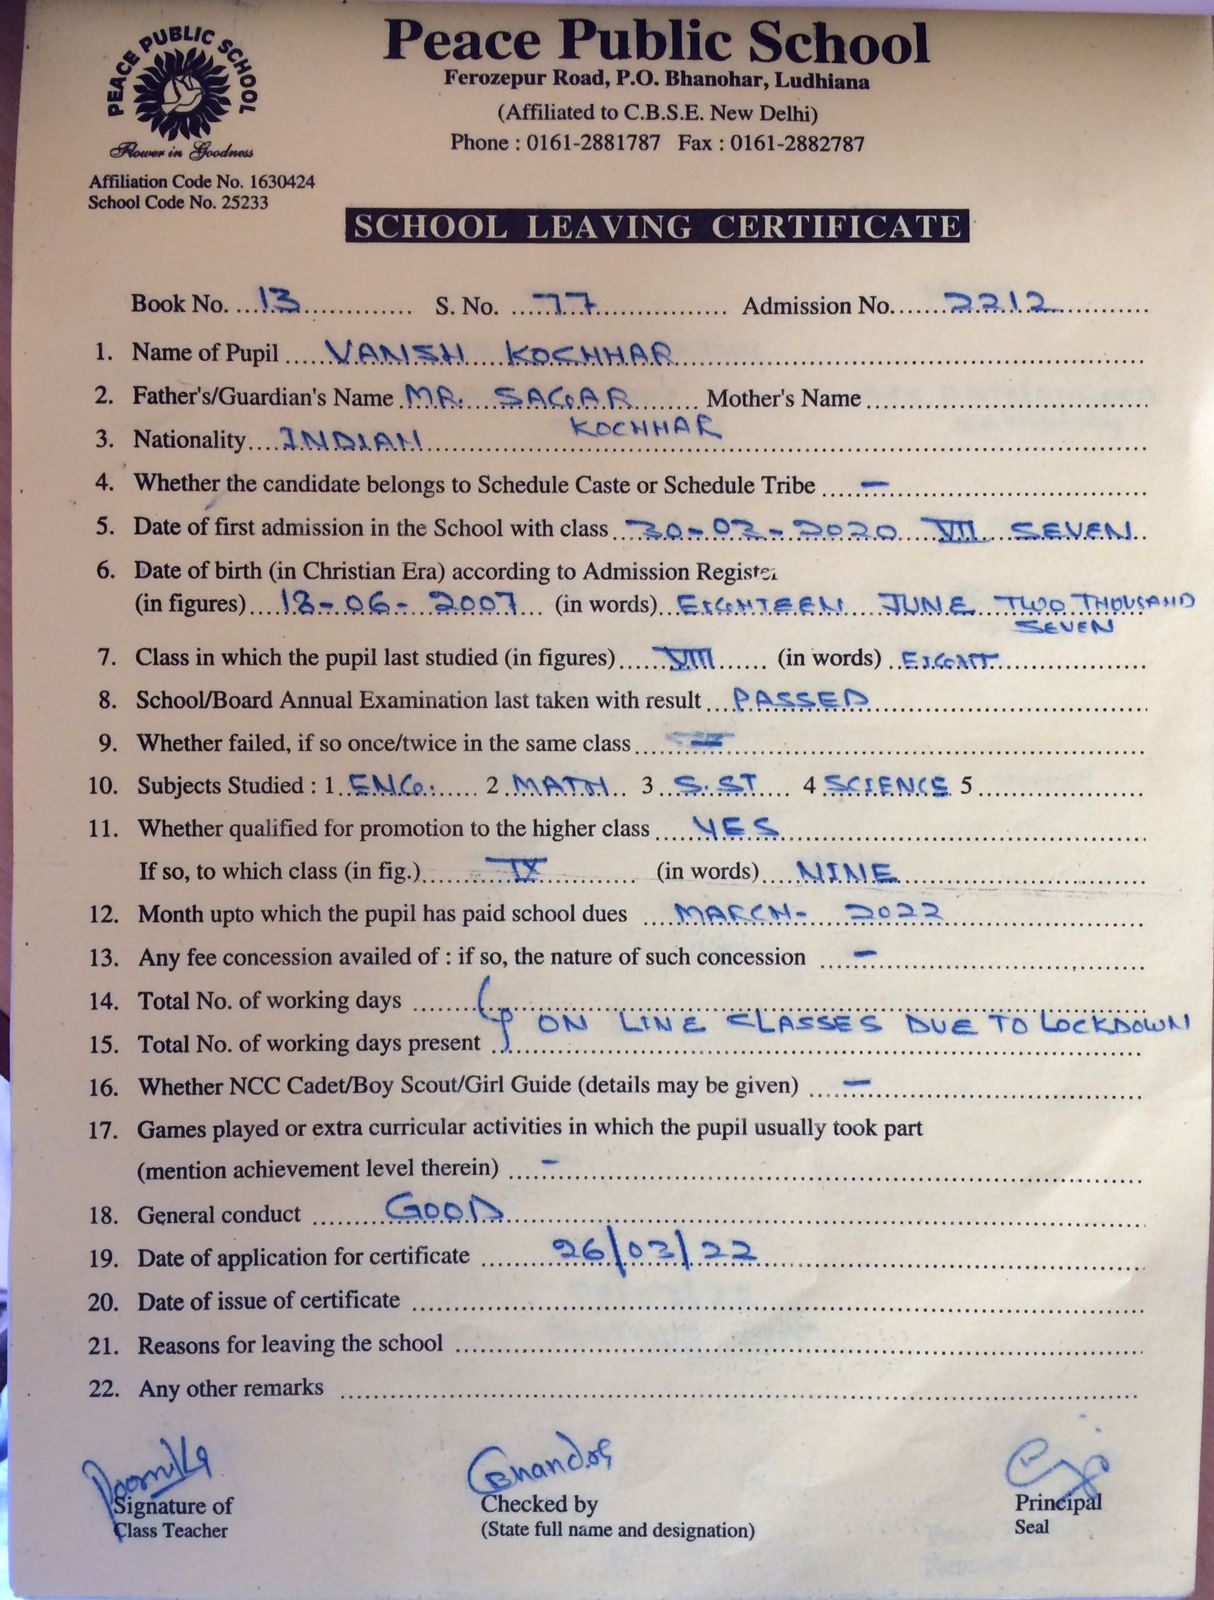 PEACE PUBLIC SCHOOL
Flower in Goodness
Affiliation Code No. 1630424
School Code No. 25233
Peace Public School
Ferozepur Road, P.O. Bhanohar, Ludhiana
(Affiliated to C.B.S.E. New Delhi)
Phone : 0161-2881787 Fax : 0161-2882787
SCHOOL LEAVING CERTIFICATE
Book No. 13 S. No. 77 Admission No. 2212
1. Name of Pupil VANISH KOCHHAR
2. Father's/Guardian's Name MR. SAGAR KOCHHAR Mother's Name
3. Nationality INDIAN
4. Whether the candidate belongs to Schedule Caste or Schedule Tribe –
5. Date of first admission in the School with class 30-03-2020 VII SEVEN
6. Date of birth (in Christian Era) according to Admission Register
(in figures) 18-06-2007 (in words) EIGHTEEN JUNE TWO THOUSAND SEVEN
7. Class in which the pupil last studied (in figures) VIII (in words) EIGHT
8. School/Board Annual Examination last taken with result PASSED
9. Whether failed, if so once/twice in the same class –
10. Subjects Studied : 1 ENG. 2 MATH 3 S.ST 4 SCIENCE 5
11. Whether qualified for promotion to the higher class YES
If so, to which class (in fig.) IX (in words) NINE
12. Month upto which the pupil has paid school dues MARCH- 2022
13. Any fee concession availed of : if so, the nature of such concession –
14. Total No. of working days
ON LINE CLASSES DUE TO LOCKDOWN
15. Total No. of working days present
16. Whether NCC Cadet/Boy Scout/Girl Guide (details may be given) –
17. Games played or extra curricular activities in which the pupil usually took part
(mention achievement level therein) –
18. General conduct GOOD
19. Date of application for certificate 26/03/22
20. Date of issue of certificate
21. Reasons for leaving the school
22. Any other remarks
Signature of
Class Teacher
Checked by
(State full name and designation)
Principal
Seal